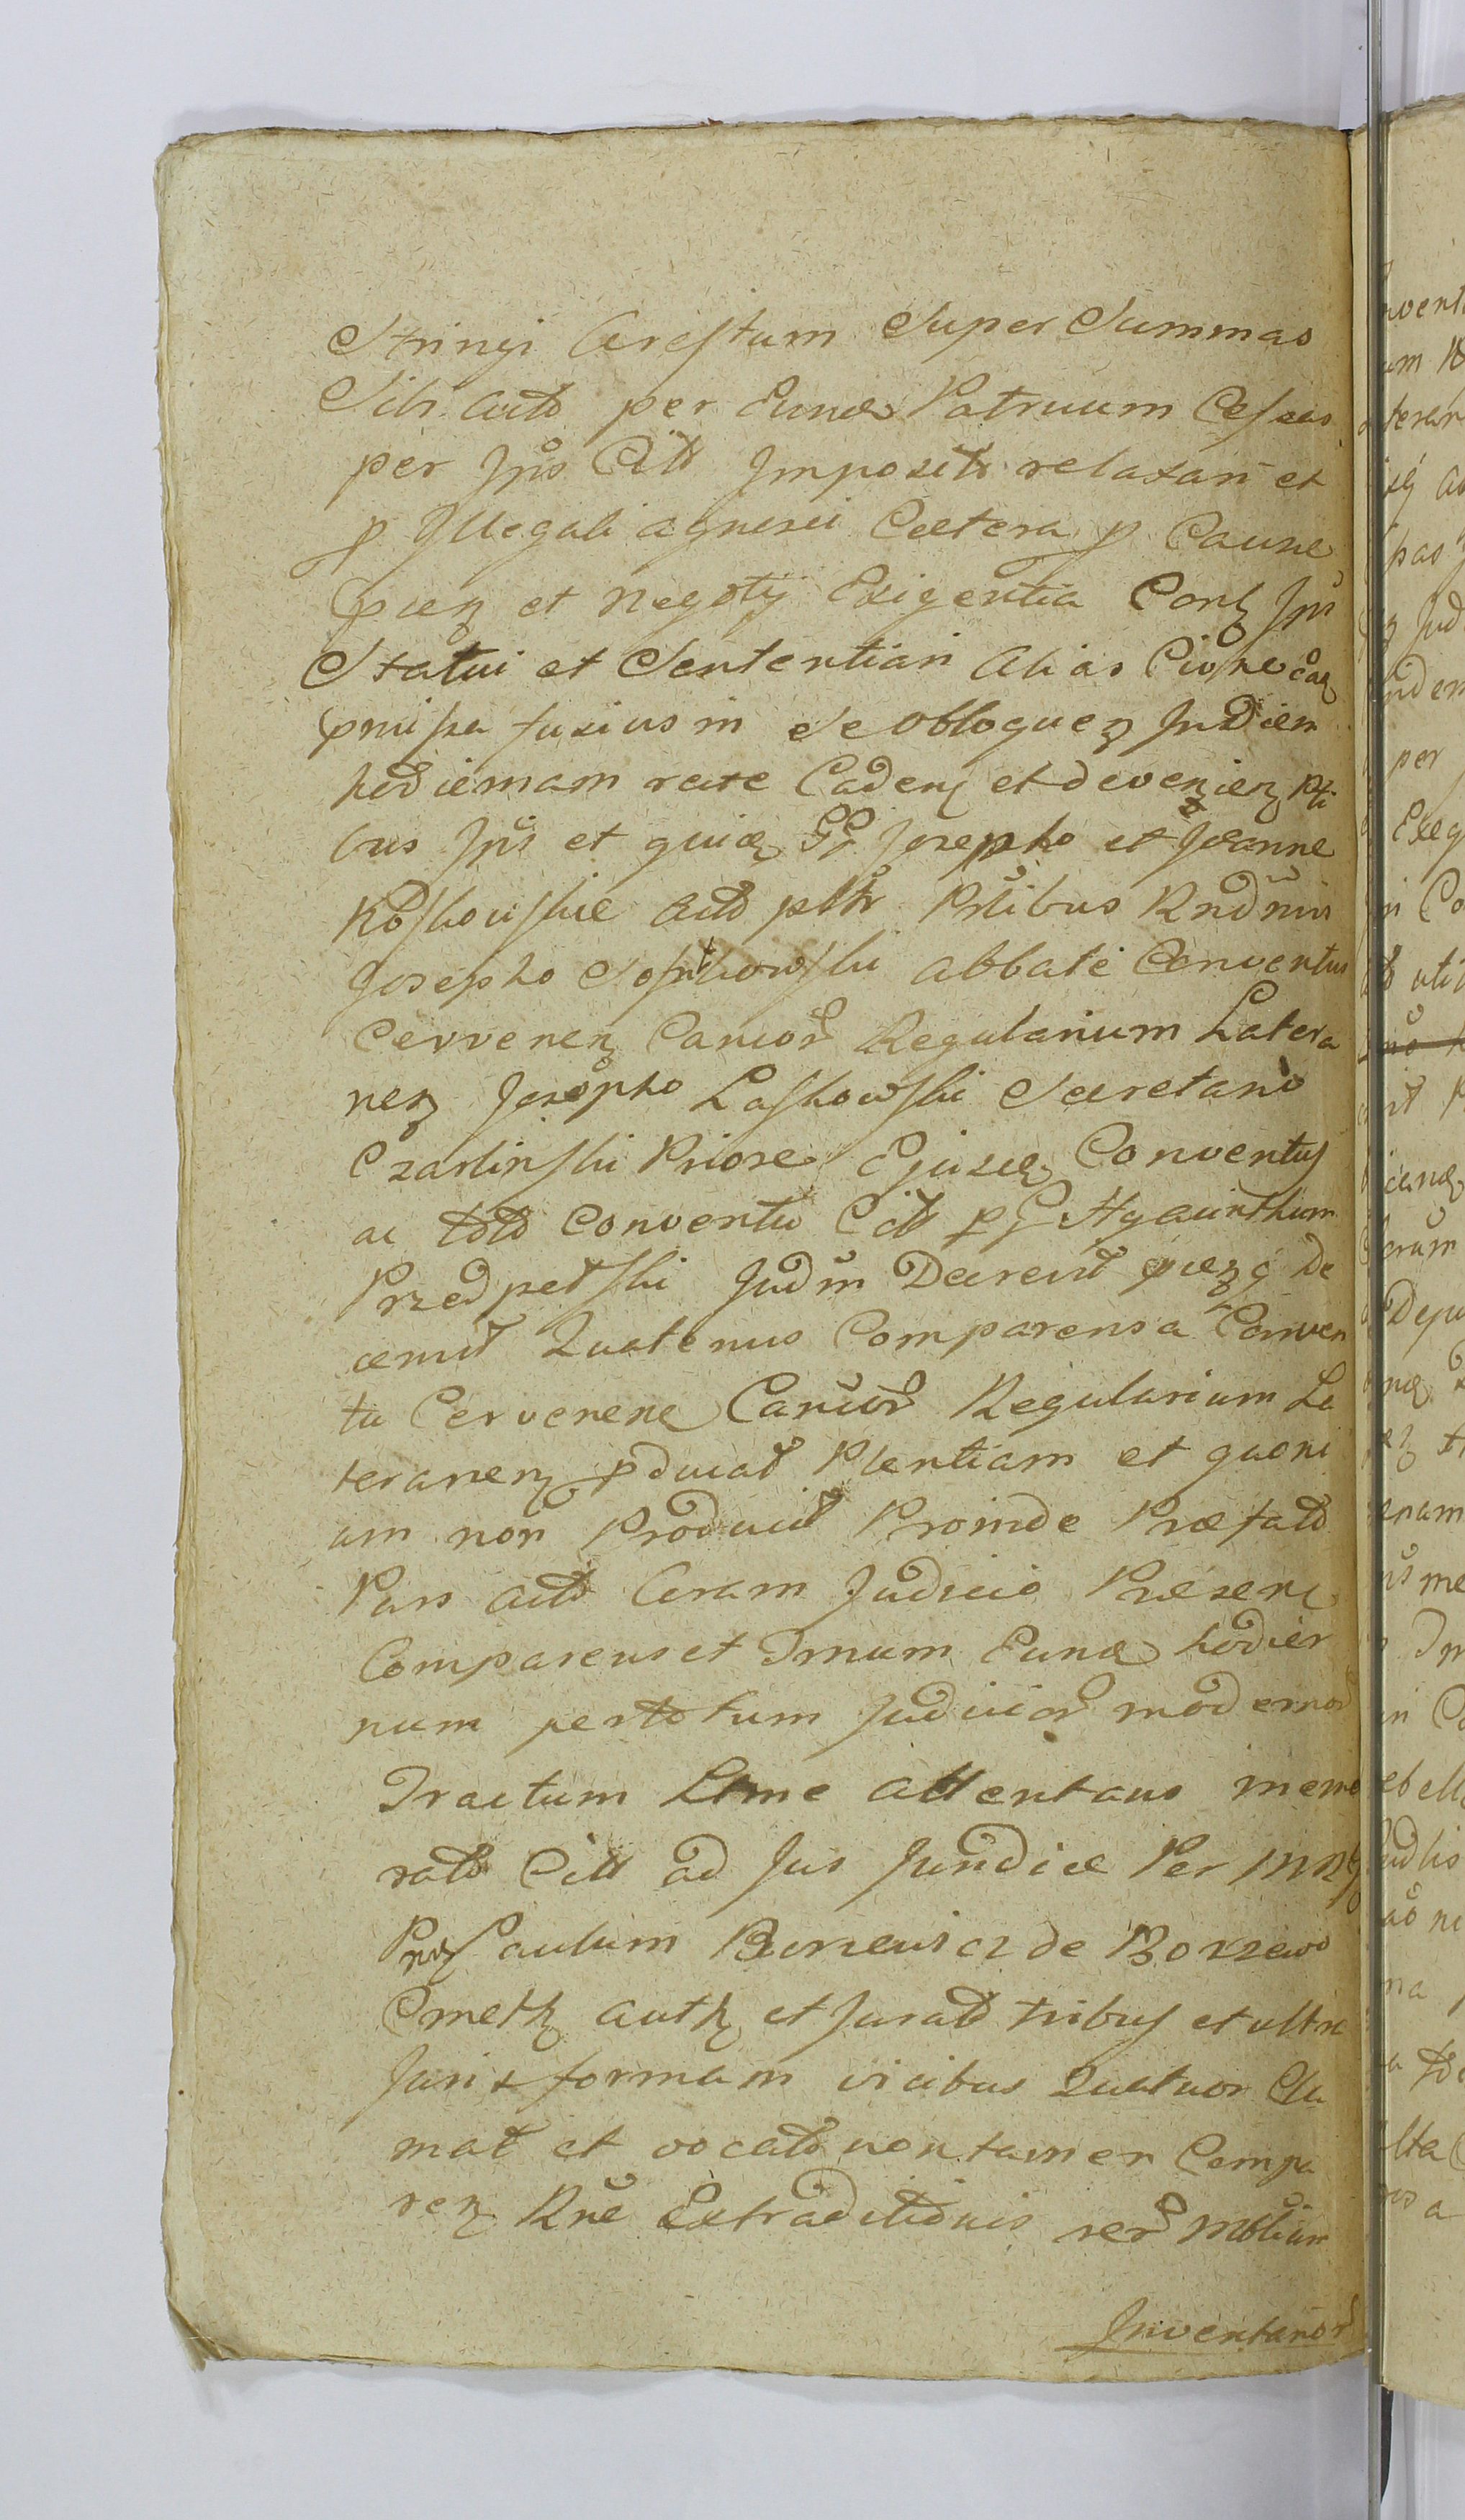 Stringi Arestum Super Summas
Sibi Acto per Eund Patruum Cessas
per Jpõs Citt Imposit relaxari et
p Illegali agnosci Cætera p Causæ
pñez et negotij Exigentia Corz Jpñ
Statui et Sententiari Alias Citõne
pmissa fusius in Se obloquez In Diem
hodiernam recte Caden et devenien Pti
bus Jpĩs et quidz GG Josepho et Joanne
Koskowskie Acto pltr Ptibus Rndmis
Josepho abbate Conventus
Cervenen Canicor Regularium Latera
nen Josepho Laskowski Secretario
Czarlinski Priore Ejusd Conventus
ac toto Conventu Citt p G Hyacinthum
Przedpelski Judm Decrevit de
cernit Quatenus Comparensa Conven
tu Cervenene Canicor Regularium La
teranen pducat Plentiam et quoni
am non Produxit Proinde Præfato
Pars Acto Coram Judicio Præsen
Comparens et Trnum Eund hodier
num per totum Judicior modernor
Tractum Ltme attentans memo
rato Citt ad Jus Juridice Per Mnz
Paulum Borzewicz de Borzewo
autz et Jurato tribus et ultra
Juris formam vicibus Quatuor Cla
mat et vocato non tamen Compa
ren Rne Extraditionis rer Mobilium
Inventarior